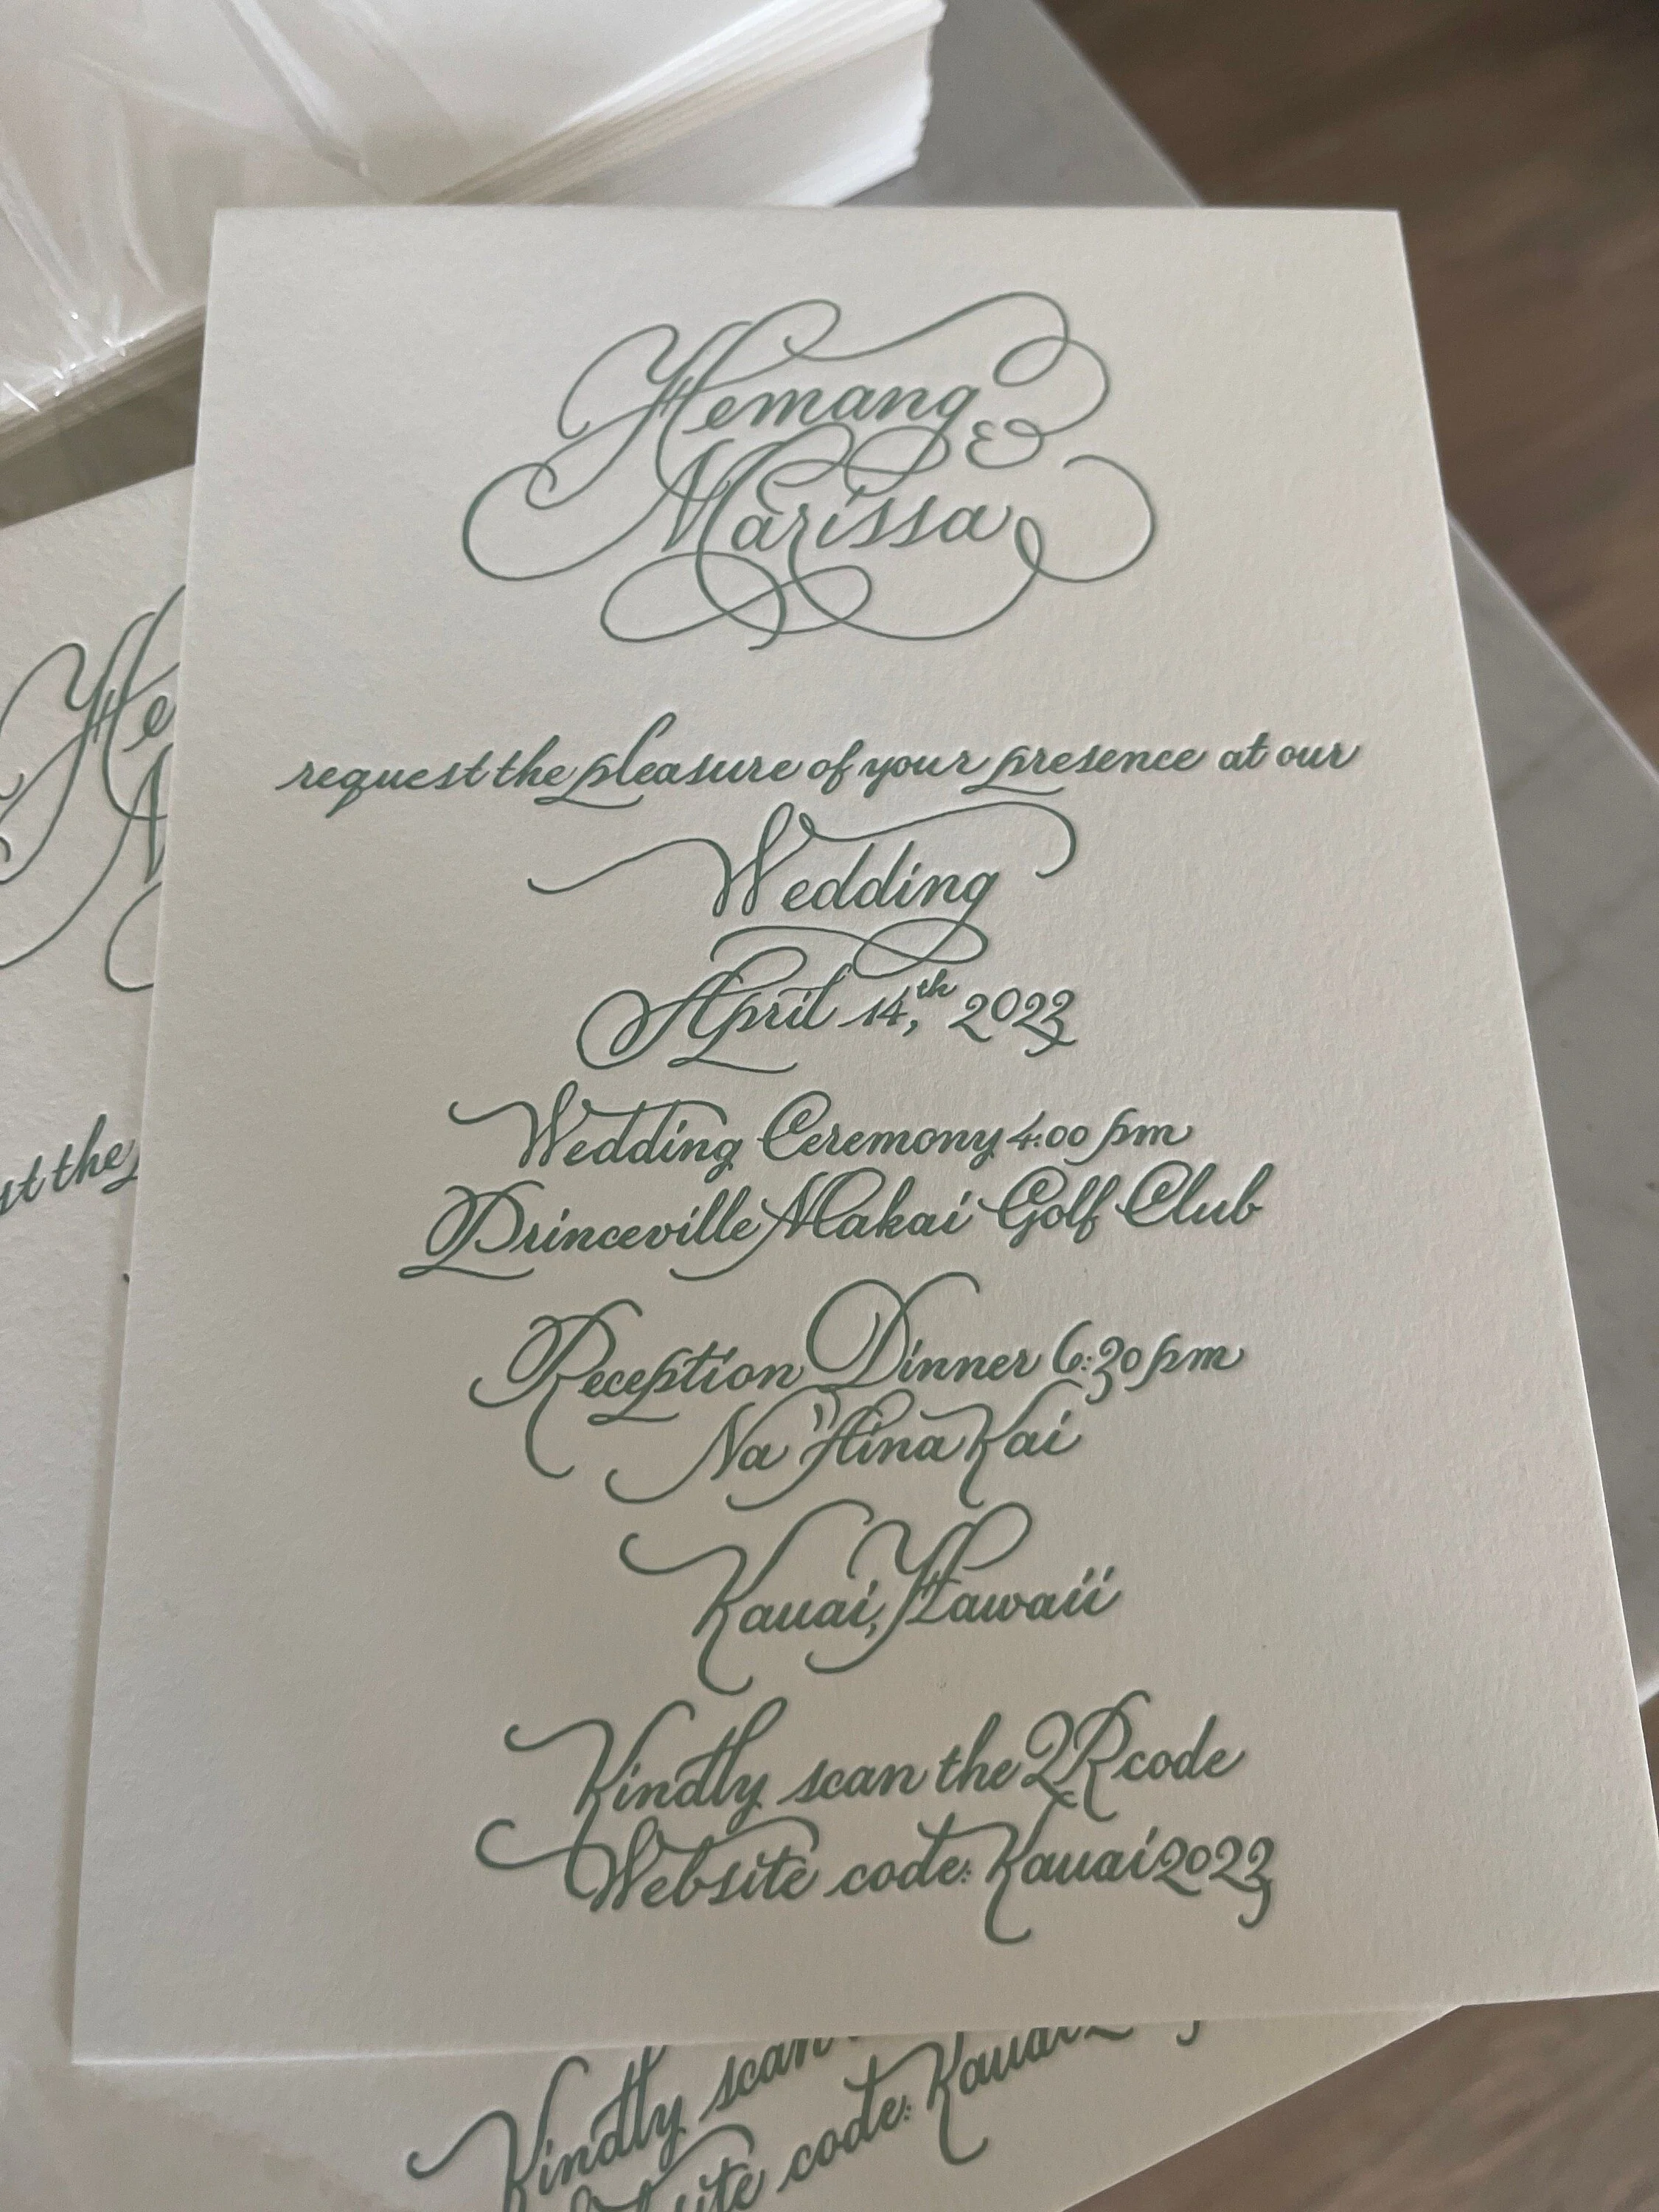 Hemang &
Marissa
request the pleasure of your presence at our
Wedding
April 14,th 2023
Wedding Ceremony 4:00 pm
Princeville Makai Golf Club
Reception Dinner 6:30 pm
Na 'Aina Kai
Kauai, Hawaii
Kindly scan the QR code
Website code: Kauai2023
He
st the
Kindly scan
site code: Kauai2